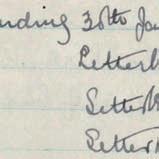 nding 30th Ja
Letter
Letter
Letter